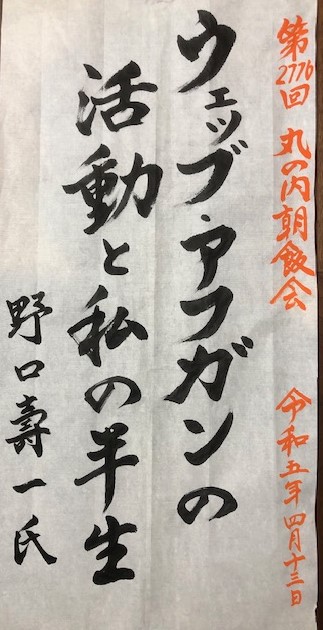 第2776回 丸の内朝飯会 令和五年四月十三日
ウェッブ・アフガンの
活動と私の半生
野口壽一氏